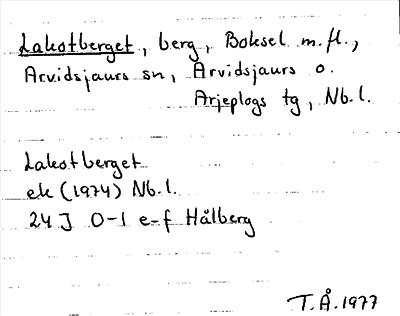 Lakotberget, berg, Boksel m.fl.,
Arvidsjaurs sn, Arvidsjaurs o.
Arjeplogs tg, Nb.l.
Lakotberget
ek (1974) Nb.l.
24J 0-1 e-f Hålberg
T.Å.1977